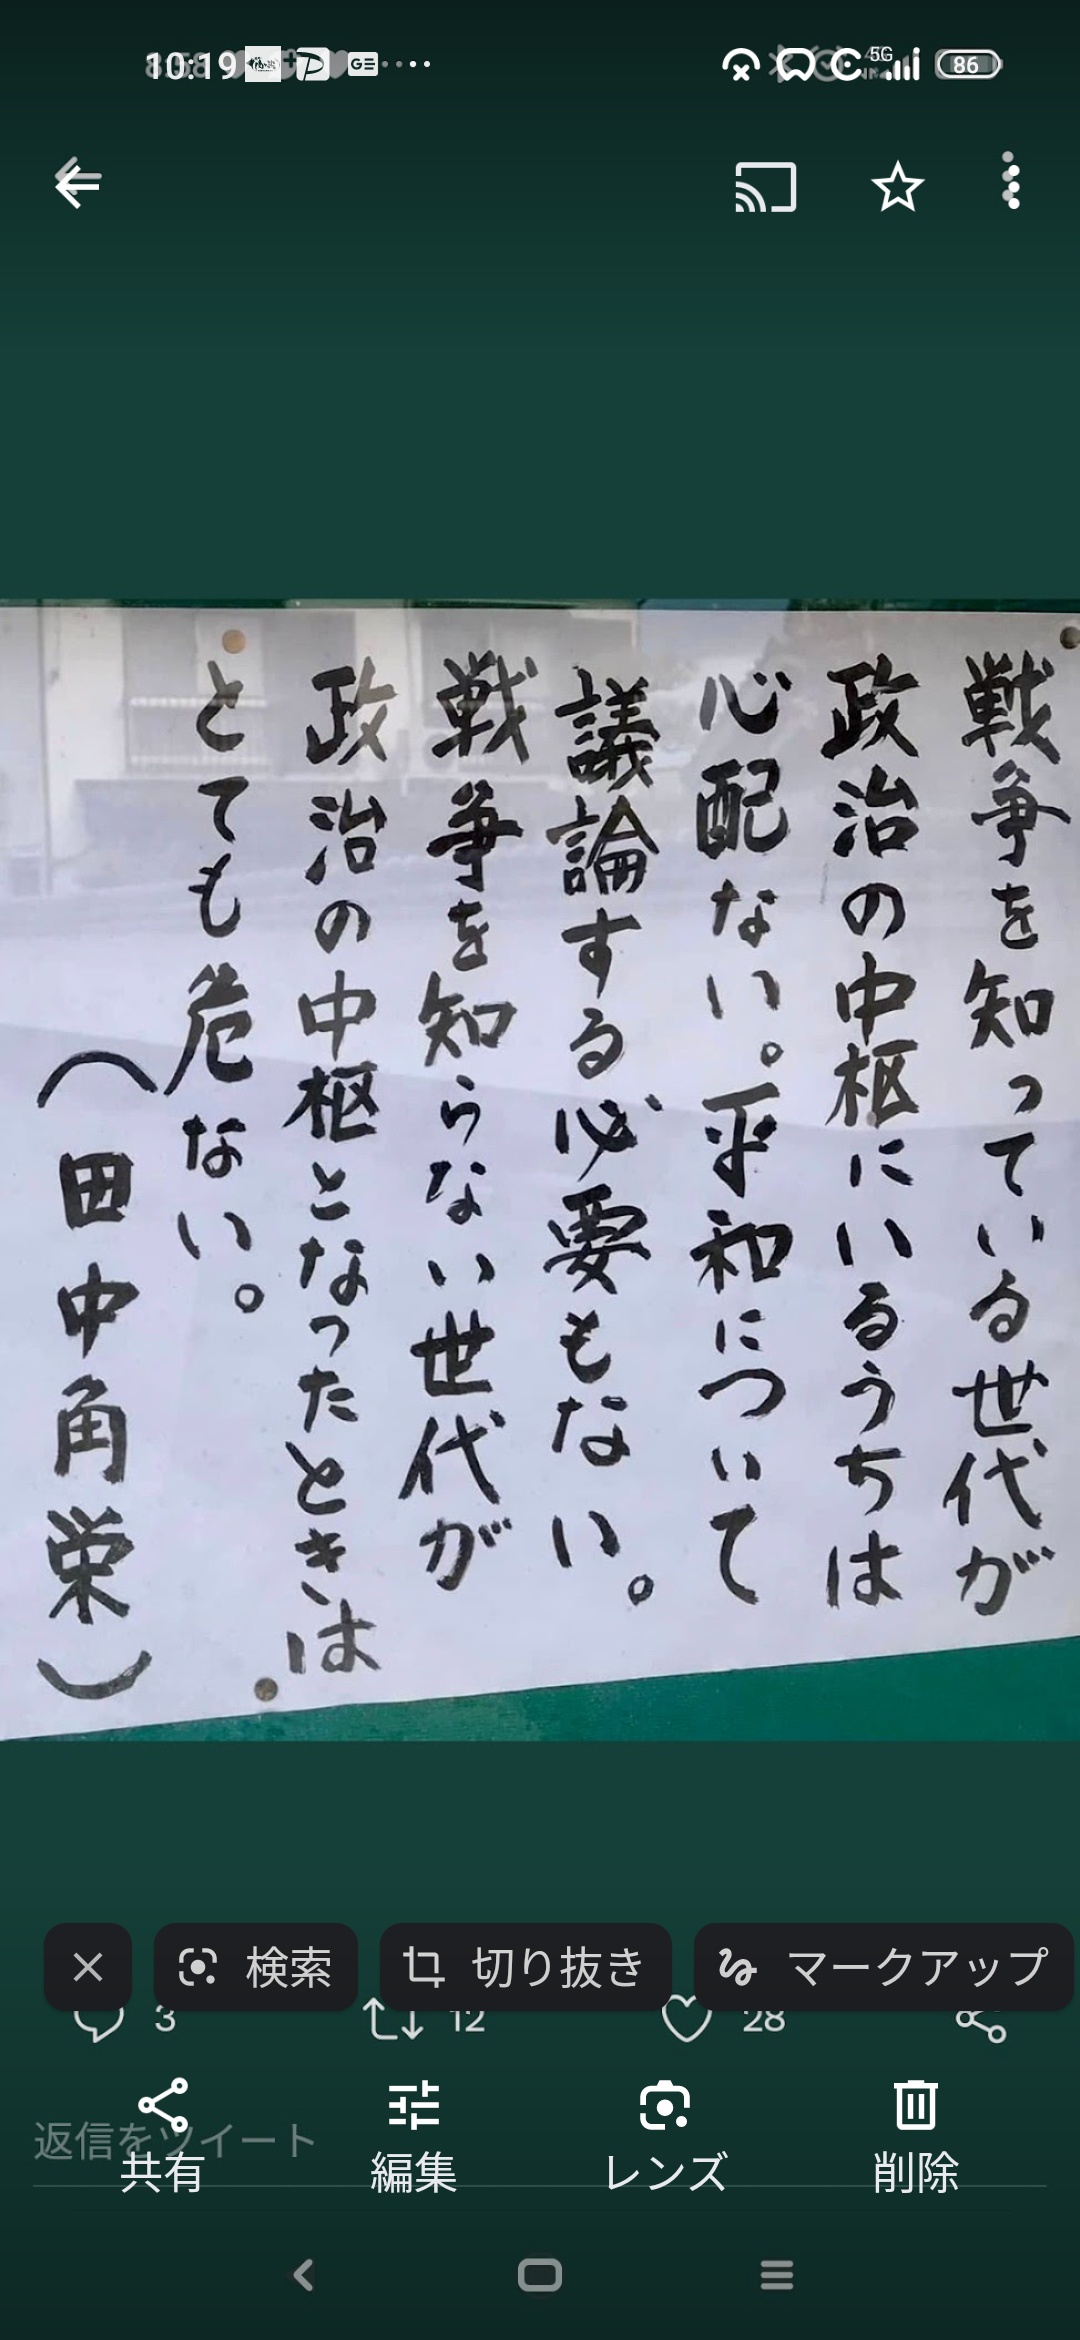 10:19
5G
86
戦争を知っている世代が
政治の中枢にいるうちは
心配ない。平和について
議論する必要もない。
戦争を知らない世代が
政治の中枢となったときは
とても危ない。
（田中角栄）
検索
切り抜き
マークアップ
3
12
28
返信をツイート
共有
編集
レンズ
削除